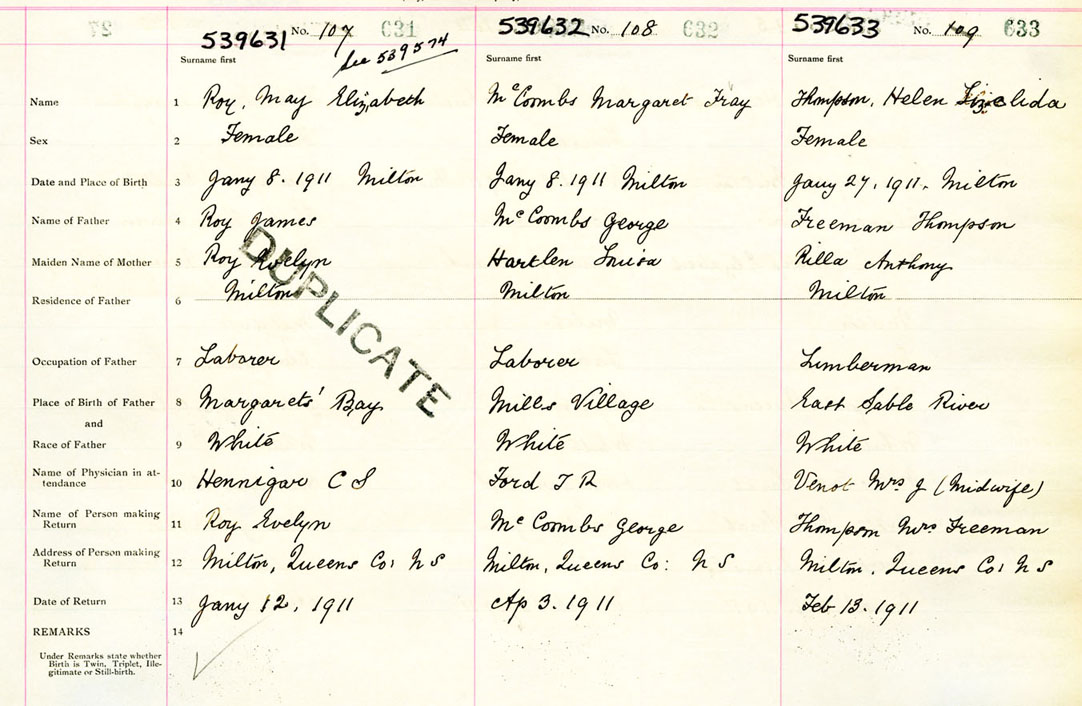 539631 No. 107 631
See 539574
Surname first
539632 No. 108 632
Surname first
539633 No. 109 633
Surname first
Name 1 Roy, May Elizabeth McCoombs Margaret Fray Thompson, Helen
Sex 2 Female Female Female
Date and Place of Birth 3 Jany 8. 1911 Milton Jany 8. 1911 Milton Jany 27, 1911. Milton
Name of Father 4 Roy James McCoombs George Freeman Thompson
Maiden Name of Mother 5 Roy Hartlen Louisa Rilla Anthony
Residence of Father 6 Milton Milton Milton
DUPLICATE
Occupation of Father 7 Laborer Laborer Lumberman
Place of Birth of Father 8 Margarets' Bay Mills Village East Sable River
and
Race of Father 9 White White White
Name of Physician in at-
tendance 10 Hennigar C S Ford T R Venot Mrs J (Midwife)
Name of Person making
Return 11 Roy Evelyn McCoombs George Thompson Mrs Freeman
Address of Person making
Return 12 Milton, Queens Co: N S Milton, Queens Co: N S Milton. Queens Co: N S
Date of Return 13 Jany 12, 1911 Ap 3. 1911 Feb 13. 1911
REMARKS 14
Under Remarks state whether
Birth is Twin, Triplet, Ille-
gitimate or Still-birth.